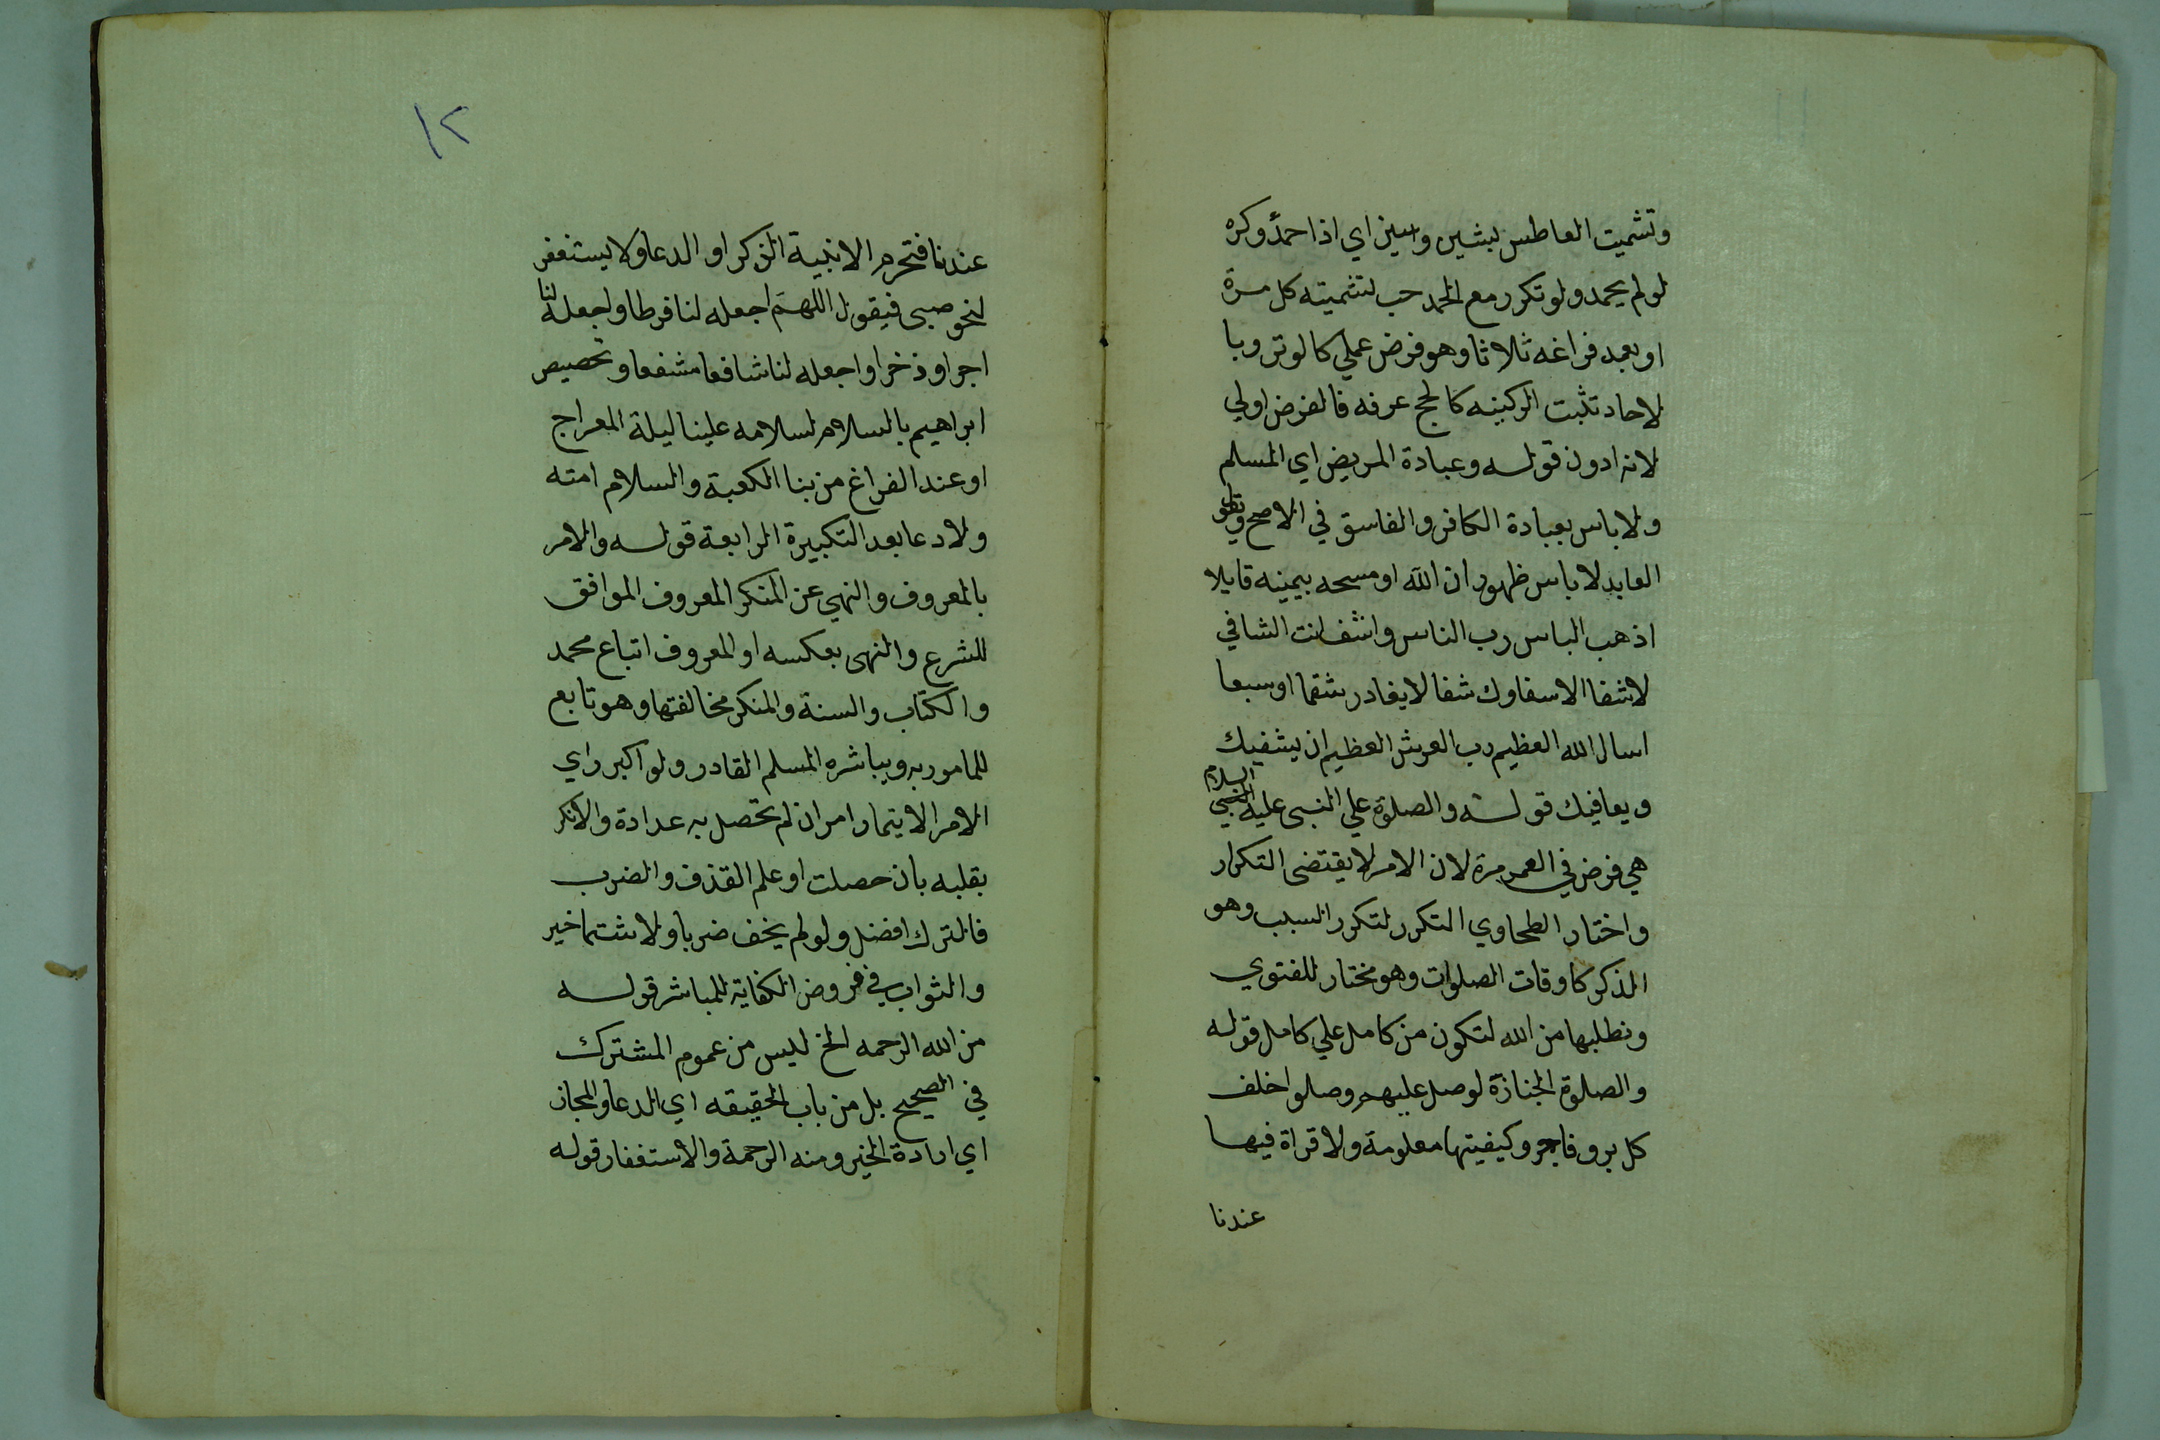 وتشميت العاطس بشين وسين اي اذا حمد وكره
لو لم يحمد ولو تكرر مع الحمد حب لتشميته كل مرة
او بعد فراغه ثلاثا وهو فرض عملي كالوتر وبا
لاحاد تثبت الركينه كالحج عرفه فالفرض اولي
لانه ادون قوله وعيادة المريض اي المسلم
ولا باس بعيادة الكافر والفاسق في الاصح
العايد لا باس ظهور ان الله او مسحه بيمينه قايلا
اذهب الباس رب الناس واشف انت الشافي
لاشفا الاسفاوك شفا لا يغادر شقما او سبعا
اسال الله العظيم رب العرش العظيم ان يشفيك
ويعافيك قوله والصلوة علي النبي عليه السلام
هي فرض في العمر مرة لان الامر لا يقتضى التكرار
واختار الطحاوي التكرر لتكرر السبب وهو
الذكر كاوقات الصلوات وهو مختار للفتوي
ونطلبها من الله لتكون من كامل علي كامل قوله
والصلوة الجنازة لوصل عليهم وصلوا خلف
كل بر وفاجر وكيفيتها معلومة ولا قراة فيها
عندنا
١٢
عندنا فتحرم الا بنية الذكر او الدعا ولا يستغفر
لنحو صبى فيقول اللهم اجعله لنا فرطا واجعله لنا
اجرا وذخرا واجعله لنا شافعا مشفعا وتخصيص
ابراهيم بالسلام لسلامه علينا ليلة المعراج
او عند الفراغ من بنا الكعبة والسلام امته
ولا دعا بعد التكبيرة الرابعة قوله والامر
بالمعروف والنهي عن المنكر المعروف الموافق
للشرع والنهى بعكسه او المعروف اتباع محمد
والكتاب والسنة والمنكر مخالفتها وهو تابع
للمامور به ويباشره المسلم القادر ولو اكبر راي
الامر الايتمار امر ان لم تحصل به عدادة والانكر
بقلبه بان حصلت او علم القذف والضرب
فالترك افضل ولو لم يخف ضربا ولا شتما خير
والثواب في فروض الكفاية للمباشر قوله
من الله الرحمه الخ ليس من عموم المشترك
في الصحيح بل من باب الحقيقه اي الدعا والمجاز
اي ارادة الخير ومنه الرحمة والاستغفار قوله